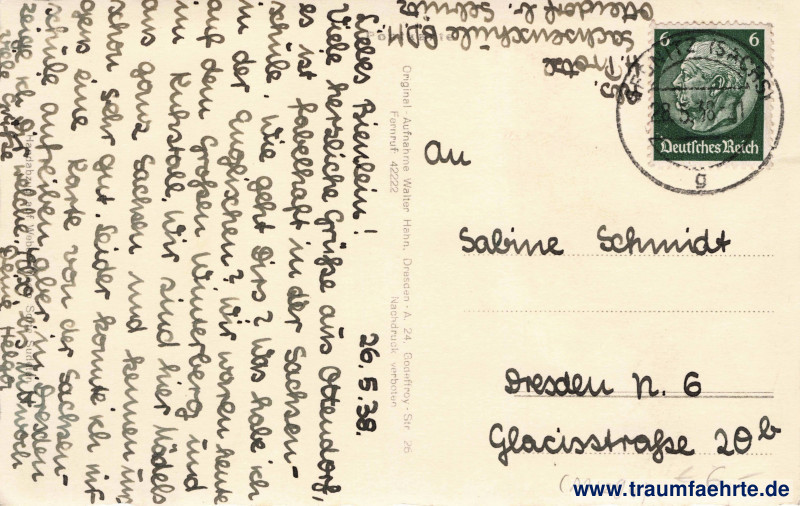 26.5.38.
Liebes Bienlein!
Viele herzliche Grüße aus Ottendorf,
es ist fabelhaft in der Sachsen-
schule. Wie geht Dirs? Was habt ich
in der englischen? Wir waren heute
auf dem Großen Winterberg und
im Kuhstall. Wir sind hier Mädels
aus ganz Sachsen und kennen uns
schon sehr gut. Leider konnte ich nir-
gens eine Karte von der Sachsen-
schule auftreiben aber in Dresden
zeige ich dir welche. Also bis Mittwoch
viele Grüße Deine Helga
Original-Aufnahme Walter Hahn, Dresden-A. 24, Godeffroy-Str. 26
Fernruf 42222 Nachdruck verboten
Postkarte
Abs.
H. Protze
Sachsenschule BDM.
Ottendorf b. Sebnitz
6 6
Deutsches Reich
SEBNITZ (SACHS)
28.5.38
g
An
Sabine Schmidt
Dresden N. 6
Glacisstraße 20b
www.traumfaehrte.de